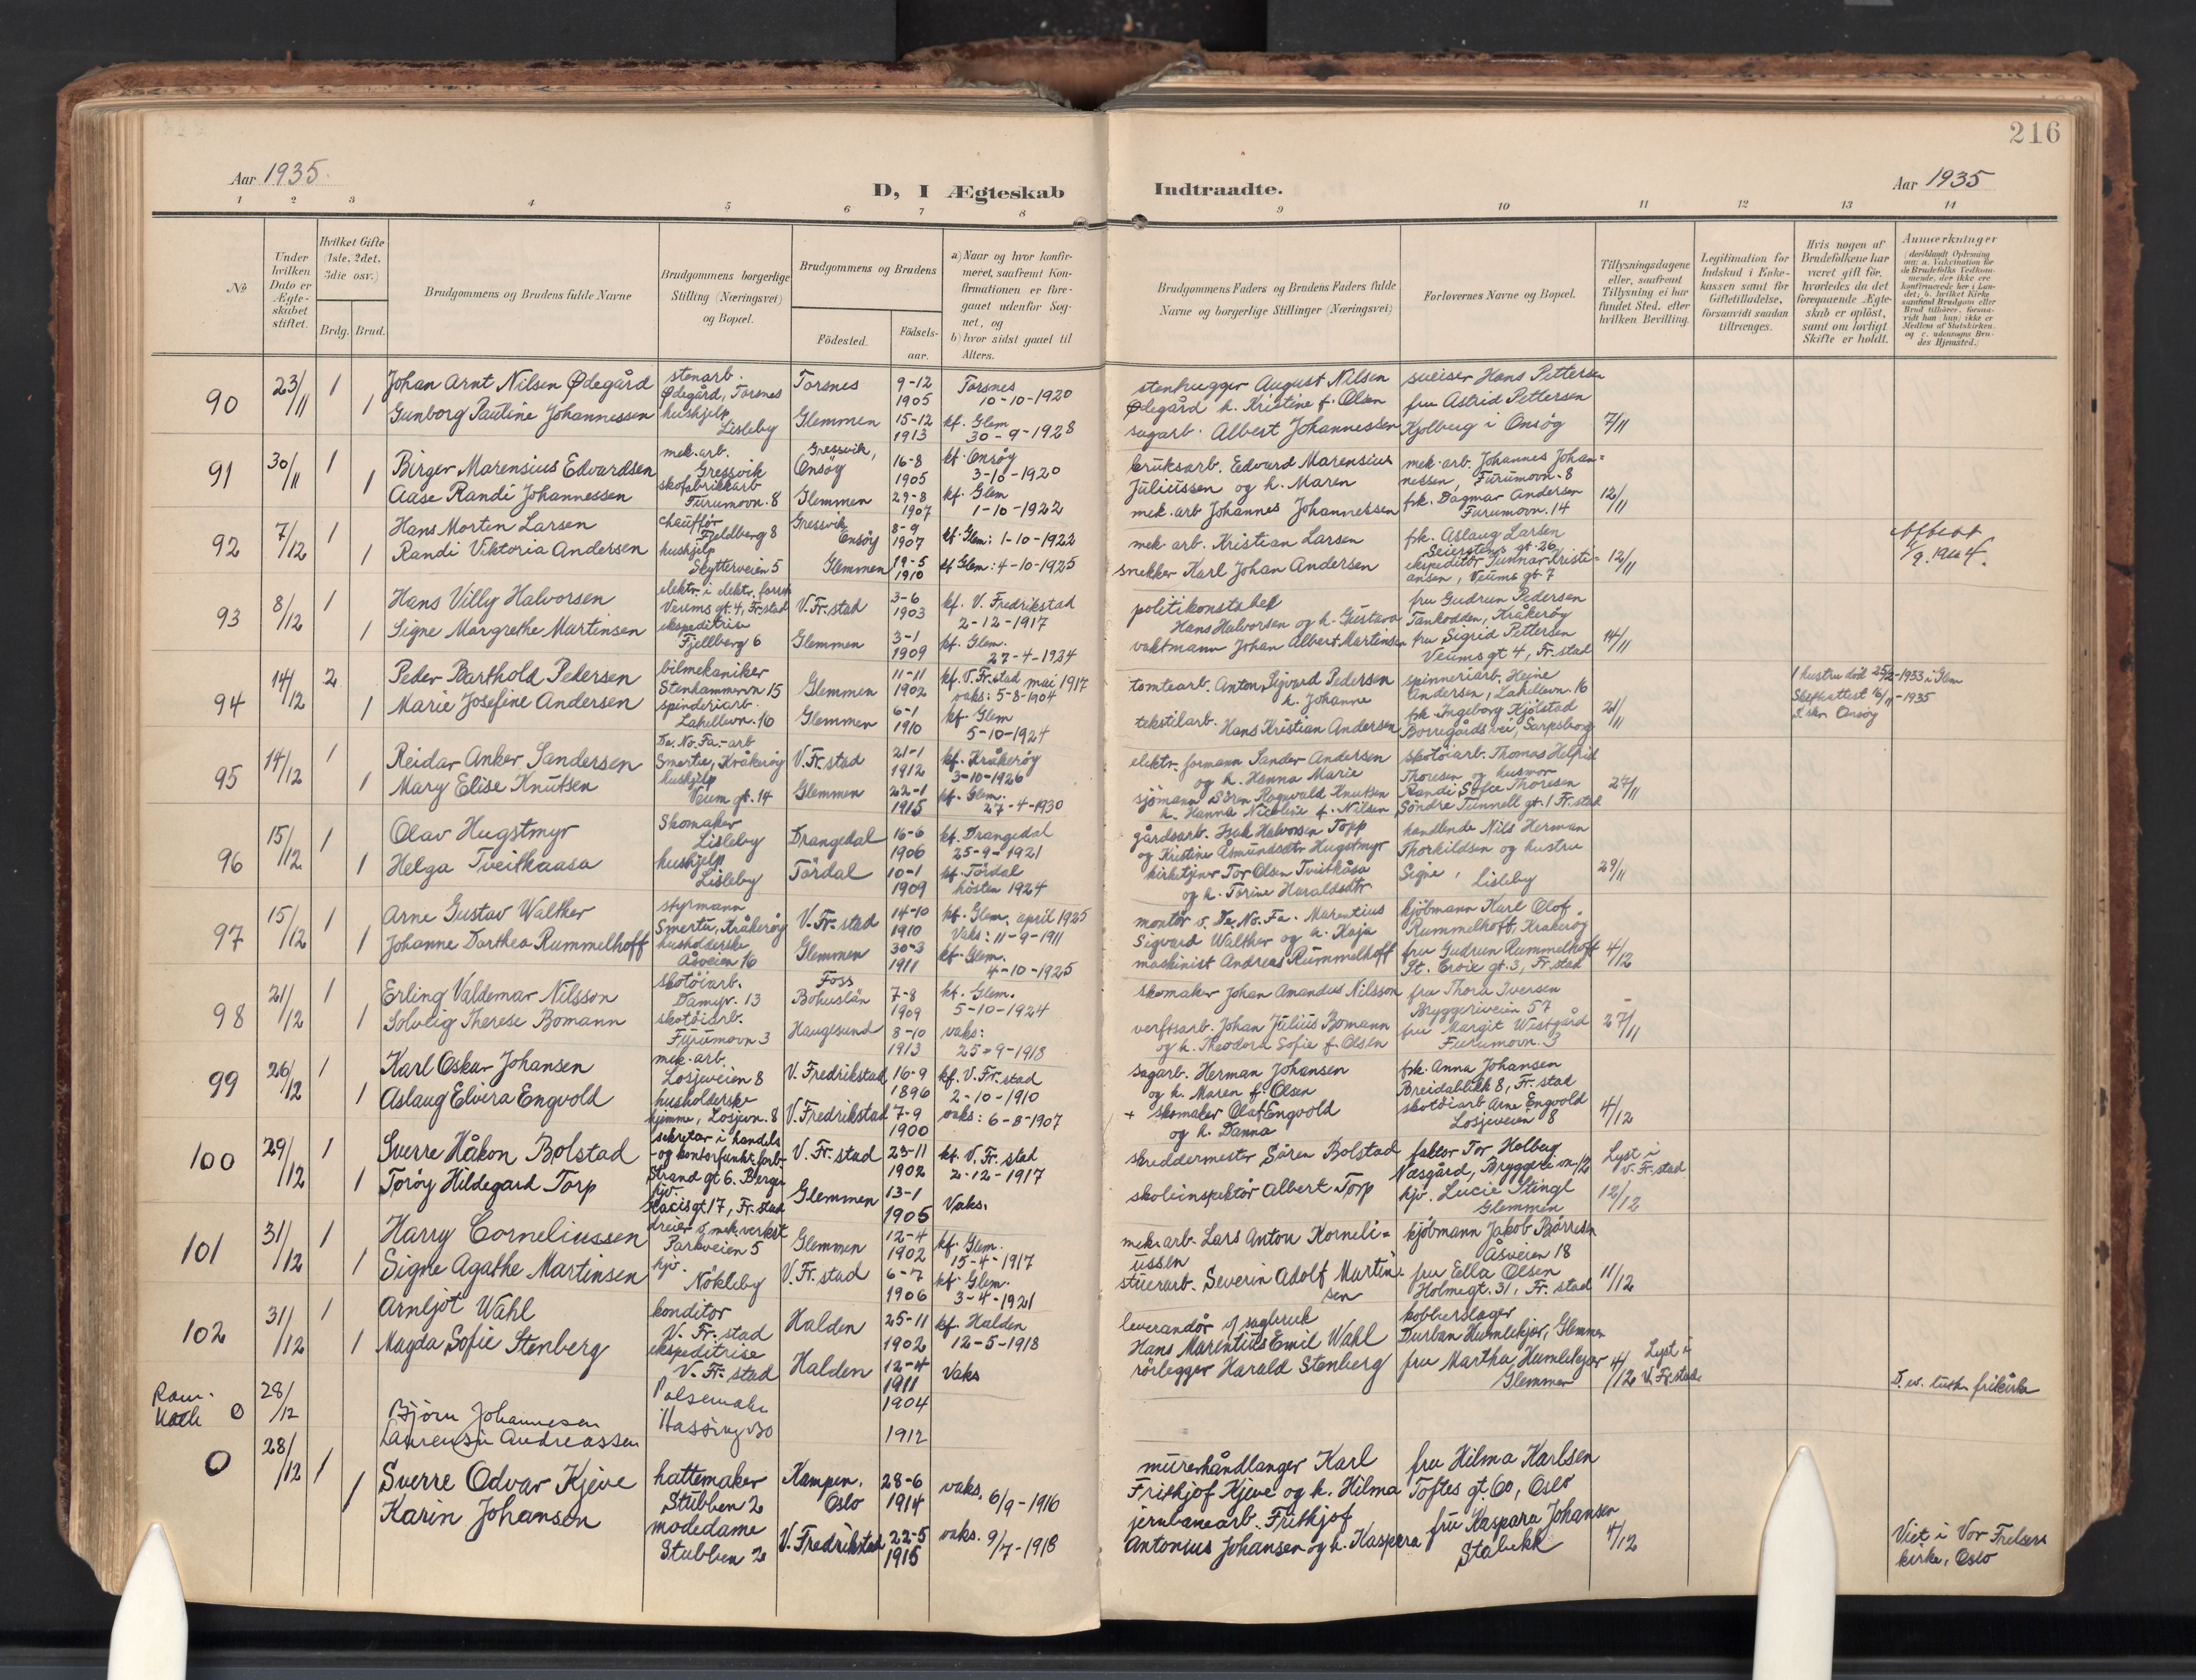 216
Aar 1935.
D, I Ægteskab Indtraadte.
Aar 1935
1 2 3 4 5 6 7 8 9 10 11 12 13 14
No
Under hvilken Dato er Ægteskabet stiftet.
Hvilket Gifte (1ste, 2det, 3die osv.)
Brdg. Brud.
Brudgommens og Brudens fulde Navne
Brudgommens borgerlige Stilling (Næringsvei) og Bopæl.
Brudgommens og Brudens
Födested.
Födsels-aar.
a) Naar og hvor konfirmeret, saafremt Konfirmationen er foregaaet udenfor Sognet, og
b) hvor sidst gaaet til Alters.
Brudgommens Faders og Brudens Faders fulde Navne og borgerlige Stillinger (Næringsvei)
Forlovernes Navne og Bopæl.
Tillysningsdagene eller, saafremt Tillysning ei har fundet Sted, efter hvilken Bevilling.
Legitimation for Indskud i Enkekassen samt for Giftetilladelse, forsaavidt saadan tiltrænges.
Hvis nogen af Brudefolkene har været gift för, hvorledes da det foregaaende Ægteskab er oplöst, samt om lovligt Skifte er holdt.
Anmerkninger
(deriblandt Oplysning om: a. Vakcination for de Brudefolks Vedkommende, der ikke ere konfirmerede her i Landet; b. hvilket Kirkesamfund Brudgom eller Brud tilhörer, forsaavidt han (hun) ikke er Medlem af Statskirken, og c. udensogns Brudes Hjemsted.)
90 23/11 1 Johan Arnt Nilsen Ødegård stenarb. Ødegård, Torsnes Torsnes 9-12 1905 Torsnes 10-10-1920 stenhugger August Nilsen Ødegård h. Kristine f. Olsen sveiser Hans Pettersen
1 Gunborg Pauline Johannessen hushjelp Lisleby Glemmen 15-12 1913 kf. Glem 30-9-1928 sagarb. Albert Johannessen fru Astrid Pettersen Kjölberg i Onsöy 7/11
91 30/11 1 Birger Marensius Edvardsen mek. arb. Gressvik Gressvik, Onsöy 16-8 1905 kf. Onsöy 3-10-1920 bruksarb. Edvard Marensius Juliussen og h. Maren mek. arb. Johannes Johannessen, Furumovn. 8
1 Aase Randi Johannessen skofabrikkarb Furumovn. 8 Glemmen 29-8 1907 kf. Glem 1-10-1922 mek. arb Johannes Johannessen frk. Dagmar Andersen Furumovn. 14 12/11
92 7/12 1 Hans Morten Larsen chaufför Fjeldberg 8 Gressvik Onsöy 8-9 1907 kf. Glem: 1-10-1922 mek. arb. Kristian Larsen frk. Aslaug Larsen Seierstens gt. 26
1 Randi Viktoria Andersen hushjelp Skytterveien 5 Glemmen 19-5 1910 kf Glem: 4-10-1925 snekker Karl Johan Andersen ekspeditör Gunnar Kristiansen, Veums gt. 7 12/11
93 8/12 1 Hans Villy Halvorsen elektr. i elektr. forsn Veums gt. 4, Fr.stad V. Fr. stad 3-6 1903 kf. V. Fredrikstad 2-12-1917 politikonstabel Hans Halvorsen og h. Gustava fru Gudrun Pedersen Tankodden, Kråkeröy
1 Signe Margrethe Martinsen ekspeditrise Fjellberg 6 Glemmen 3-1 1909 kf. Glem. 27-4-1924 vaktmann Johan Albert Martinsen fru Sigrid Pettersen Veums gt 4, Fr. stad 14/11
94 14/12 2 Peder Barthold Pedersen bilmekaniker Stenhammervn 15 Glemmen 11-11 1902 kf. V. Fr. stad mai 1917 vaks: 5-8-1904 tomtearb. Anton Sigvard Pedersen h. Johanne spinneriarb. Heine Andersen, Lahellevn. 16 1 hustru död 25/2-1933 i Glem
1 Marie Josefine Andersen spinderiarb. Lahellevn. 16 Glemmen 6-1 1910 kf. Glem 5-10-1924 tekstilarb. Hans Kristian Andersen frk. Ingeborg Kjölstad Borregårds vei, Sarpsborg 21/11 Skifteattest 16/11-1935
95 14/12 1 Reidar Anker Sandersen De. No. Fa.-arb Smertu, Kråkeröy V. Fr. stad 21-1 1912 kf. Kråkeröy 3-10-1926 elektr. formann Sander Andersen og h. Hanna Marie skotöiarb. Thomas Helfrid Thoresen og husmor
1 Mary Elise Knutsen hushjelp Veum gt. 14 Glemmen 22-1 1915 kf. Glem. 27-4-1930 sjömann Sören Ragnvald Knutsen h. Hanna Nicoline f. Nilsen Randi Sofie Thoresen Söndre Tunnell gt. 1 Fr. stad 27/11
96 15/12 1 Olav Hugstmyr Skomaker Lisleby Drangedal 16-6 1906 kf. Drangedal 25-9-1921 gårdsarb. Isak Halvorsen Topp og Kristine Åsmundsdtr Hugstmyr handlende Nils Herman Thorkildsen og hustru
1 Helga Tveitkaasa hushjelp Lisleby Tördal 10-1 1909 kf. Tördal hösten 1924 kirketjner Tor Olsen Tveitkåsa og h. Torine Haraldsdtr. Signe, Lisleby 29/11
97 15/12 1 Arne Gustav Walther styrmann Smertu, Kråkeröy V. Fr. stad 14-10 1910 kf. Glem. april 1925 Vaks: 11-9-1911 montör v. De. No. Fa. Marentius Sigvard Walther og h. Kaja kjöbmann Karl Olof Rummelhoff, Kråkeröy
1 Johanne Dorthea Rummelhoff husholderske Åsveien 16 Glemmen 30-3 1911 kf. Glem. 4-10-1925 maskinist Andreas Rummelhoff fru Gudrun Rummelhoff St. Croix gt. 3, Fr. stad 4/12
98 21/12 1 Erling Valdemar Nilsson skotöiarb. Damyr. 13 Foss Bohuslän 7-8 1909 kf. Glem. 5-10-1924 skomaker Johan Amandus Nilsson fru Thora Iversen Bryggeriveien 57
1 Solveig Therese Bomann skotöiarb. Furumovn. 3 Haugesund 8-10 1913 vaks: 25-9-1918 verftsarb. Johan Julius Bomann og h. Theodora Sofie f. Olsen fru Margit Westgård Furumovn. 3 27/11
99 26/12 1 Karl Oskar Johansen mek. arb. Losjeveien 8 V. Fredrikstad 16-9 1896 kf. V. Fr. stad 2-10-1910 sagarb. Herman Johansen og h. Maren f. Olsen frk. Anna Johansen Breidablikk 8, Fr. stad
1 Aslaug Elvira Engvold husholderske hjemme, Losjevn. 8 V. Fredrikstad 7-9 1900 vaks: 6-8-1907 + skomaker Olaf Engvold og h. Danna skotöiarb Arne Engvold Losjeveien 8 4/12
100 29/12 1 Sverre Håkon Bolstad sekretær i handels- og kontorfunkt. forb. Strand gt 6. Bergen V. Fr. stad 23-11 1902 kf. V. Fr. stad 2-12-1917 skreddermester Sören Bolstad faktor Tor Holberg Næsgård, Bryggeri vn. 12 Lyst i V. Fr. stad
1 Toröy Hildegard Torp hjv. gt 17, Fr. stad Glemmen 13-1 1905 Vaks. skoleinspektör Albert Torp hjv. Lucie Stingl Glemmen 12/12
101 31/12 1 Harry Corneliussen dreier v. mek. verkst Parkveien 5 Glemmen 12-4 1902 kf. Glem. 15-4-1917 mek. arb. Lars Anton Korneliussen kjöbmann Jakob Björnsen Åsveien 18
1 Signe Agathe Martinsen hjv. Nökleby V. Fr. stad 6-7 1906 kf. Glem. 3-4-1921 stuerarb. Severin Adolf Martinsen fru Ella Olsen Holmegt. 31, Fr. stad 11/12
102 31/12 1 Arnljot Wahl konditor V. Fr. stad Halden 25-11 1902 kf. Halden 12-5-1918 leverandör v/ sagbruk Hans Marentius Emil Wahl kobberslager Durban Humlekjær, Glemmen
1 Magda Sofie Stenberg ekspeditrise V. Fr. stad Halden 12-4 1911 Vaks rörlegger Harald Stenberg fru Martha Humlekjær Glemmen 4/12 Lyst i V. Fr. stad
0 28/12 Björn Johannesen 1904 frikirke
Andreassen 1912
0 28/12 1 Sverre Odvar Kjeve hattemaker Stubben 2 Kampen, Oslo 28-6 1914 vaks. 6/9-1916 murerhåndlanger Karl Frithjof Kjeve og h. Hilma fru Hilma Karlsen Toftes gt. 60, Oslo
1 Karin Johansen modedame Stubben 2 V. Fredrikstad 22-5 1915 vaks. 9/7-1918 jernbanearb. Frithjof Antonius Johansen og h. Kaspara fru Kaspara Johansen Stabekk 4/12 Viet i Vor Frelsers kirke, Oslo